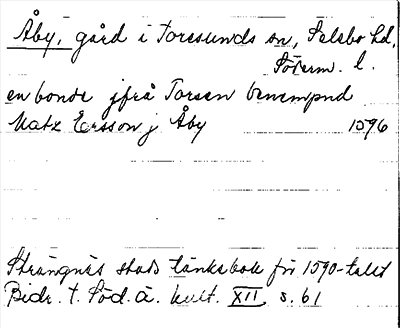 Åby, gård i Toresunds sn, Selebo hd,
Söderm. l.
en bonde jfrå Torsen benempnd
Matz Ersson j Åby 1596
Strängnäs stads tänkebok för 1590-talet
Bidr. t. Söd. ä. kult. XII s. 61